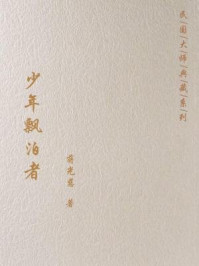 民国大师典藏系列
少年飘泊者
蒋光慈 著